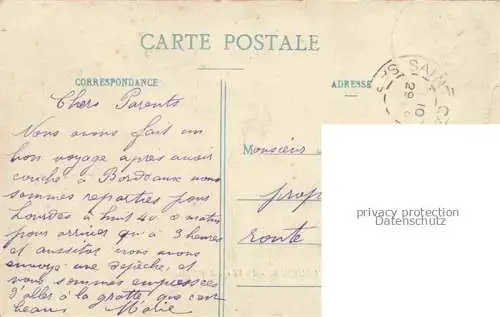 CARTE POSTALE
CORRESPONDANCE
ADRESSE
Chers Parents
Nous avons fait un
bon voyage après avoir
couché à Bordeaux nous
sommes reparties pour
Lourdes à huit 40 matin
pour arriver qu'à 3 heures
et aussitôt nous avons
envoyé une depêche, et
nous sommes empressées
d'aller à la grotte que c'est
beau Marie
Monsieur
prop
route
privacy protection
Datenschutz
SAINT
29
10